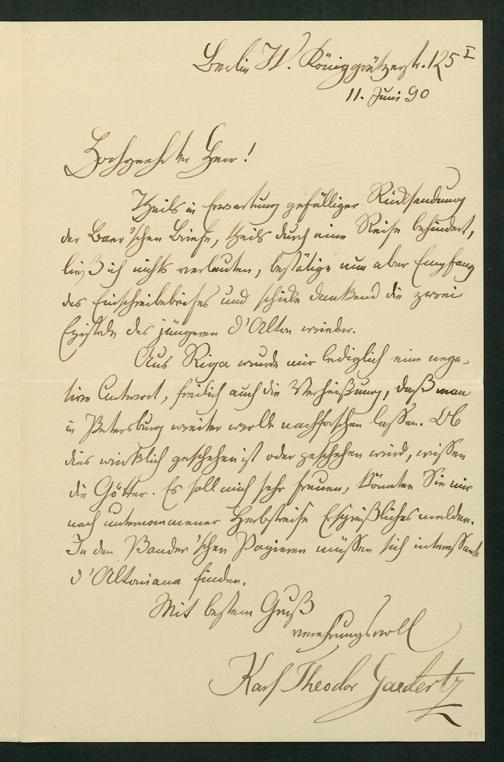 Berlin W. Königgrätzerstr. 125 I
11. Juni 90
Hochgeehrter Herr!
Theils in Erwartung gefälliger Rücksendung
der Baer'schen Briefe, theils durch eine Reise behindert,
ließ ich nichts verlauten, bestätige nun aber Empfang
des Einschreibebriefes und schicke dankend die zwei
Episteln des jüngeren d'Alton wieder.
Aus Riga wurde mir lediglich eine nega-
tive Antwort, freilich auch die Verheißung, daß man
in Petersburg weiter wolle nachforschen lassen. Ob
dies wirklich geschehen ist oder geschehen wird, wissen
die Götter. Es soll mich sehr freuen, könnten Sie mir
nach unternommener Herbstreise Ersprießliches melden.
In den Pander'schen Papieren müssen sich interessante
d'Altoniana finden.
Mit bestem Gruß
verehrungsvoll
Karl Theodor Gaedertz